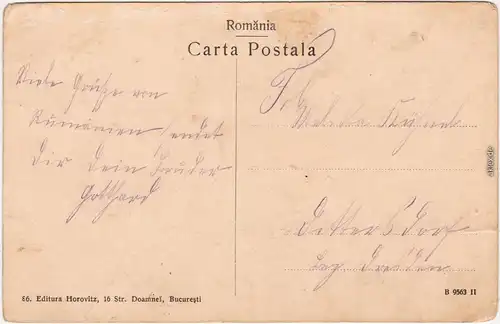 România
Carta Postala
Viele Grüße von
Rumänien sendet
Dir Dein Bruder
Gotthard
Frl.
Dittersdorf
Bez. Dresden
86. Editura Horovitz, 16 Str. Doamnei, București
B 9563 II